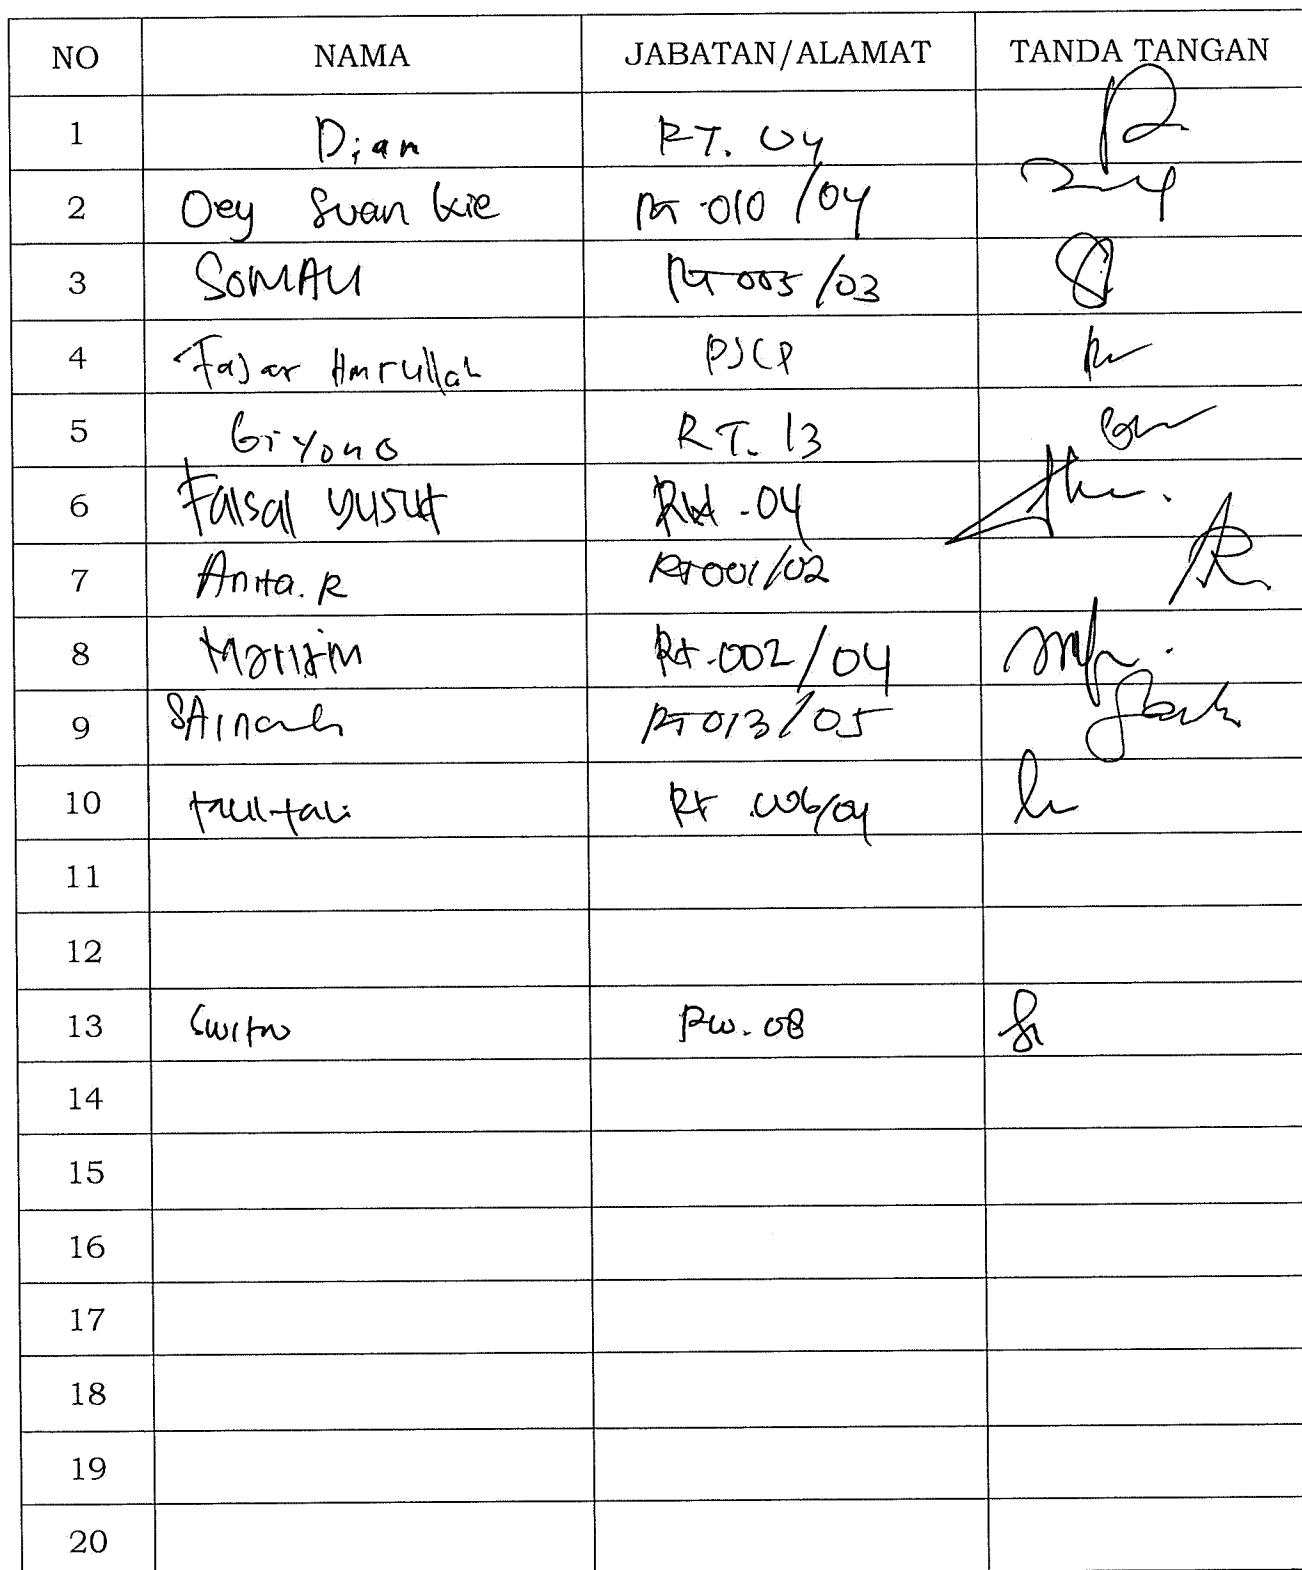 NO NAMA JABATAN/ALAMAT TANDA TANGAN
1 Dian RT. 04
2 Oey Suan Kie RT 010 /04
3 RT 005 /03
4 Fajar Amrullah PJLP
5 Giyono R T. 13
6 Faisal Yusuf RW .04
7 Anita. R RT001/02
8 RT.002/04
9 SAinah RT013/05
10 Rt 006/04
11
12
13 RW. 08
14
15
16
17
18
19
20